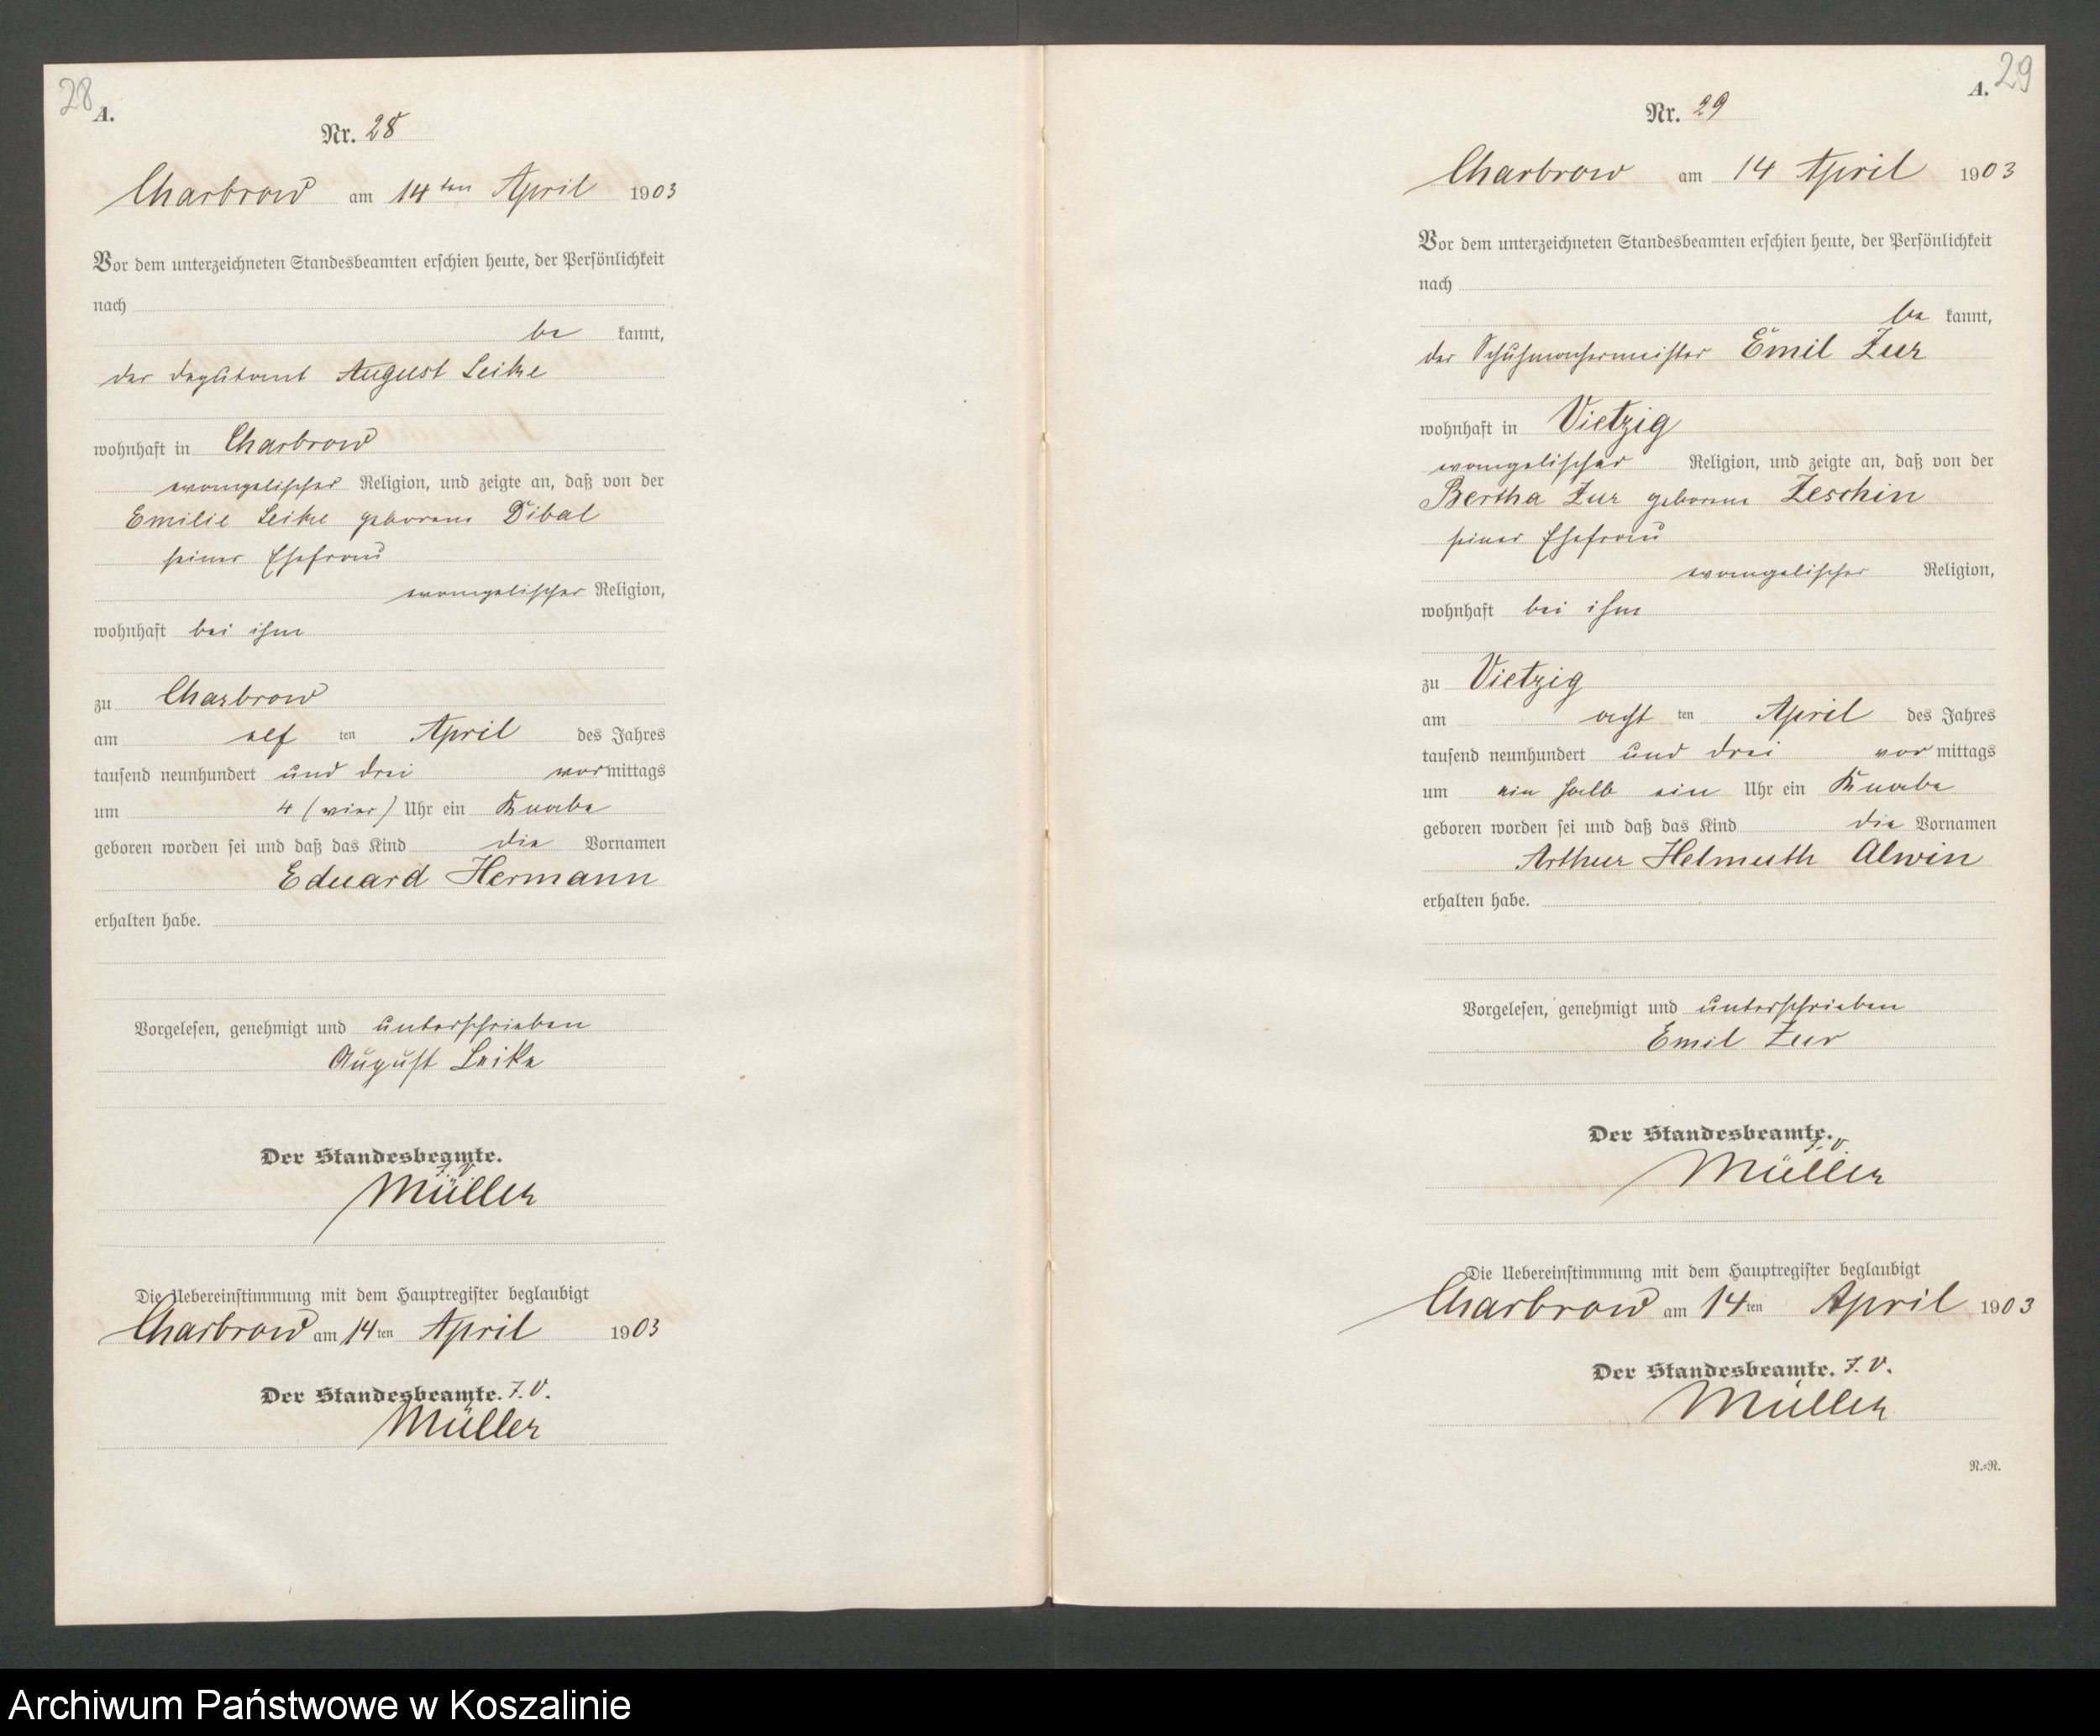 28
A.
Nr. 28
Charbrow am 14ten April 1903
Vor dem unterzeichneten Standesbeamten erschien heute, der Persönlichkeit
nach
be kannt,
der Deputant August Leike
wohnhaft in Charbrow
evangelischer Religion, und zeigte an, daß von der
Emilie Leike geborene Dibal
seiner Ehefrau
evangelischer Religion,
wohnhaft bei ihm
zu Charbrow
am elf ten April des Jahres
tausend neunhundert und drei vormittags
um 4 (vier) Uhr ein Knabe
geboren worden sei und daß das Kind die Vornamen
Eduard Hermann
erhalten habe.
Vorgelesen, genehmigt und unterschrieben
August Leike
Der Standesbeamte.
J. V.
Müller
Die Uebereinstimmung mit dem Hauptregister beglaubigt
Charbrow am 14ten April 1903
Der Standesbeamte. J. V.
Müller
29
A.
Nr. 29
Charbrow am 14 April 1903
Vor dem unterzeichneten Standesbeamten erschien heute, der Persönlichkeit
nach
be kannt,
der Schuhmachermeister Emil Zur
wohnhaft in Vietzig
evangelischer Religion, und zeigte an, daß von der
Bertha Zur geborene Zeschin
seiner Ehefrau
evangelischer Religion,
wohnhaft bei ihm
zu Vietzig
am acht ten April des Jahres
tausend neunhundert und drei vor mittags
um ein halb ein Uhr ein Knabe
geboren worden sei und daß das Kind die Vornamen
Arthur Helmuth Alwin
erhalten habe.
Vorgelesen, genehmigt und unterschrieben
Emil Zur
Der Standesbeamte.
J. V.
Müller
Die Uebereinstimmung mit dem Hauptregister beglaubigt
Charbrow am 14ten April 1903
Der Standesbeamte. J. V.
Müller
N.=N.
Archiwum Państwowe w Koszalinie